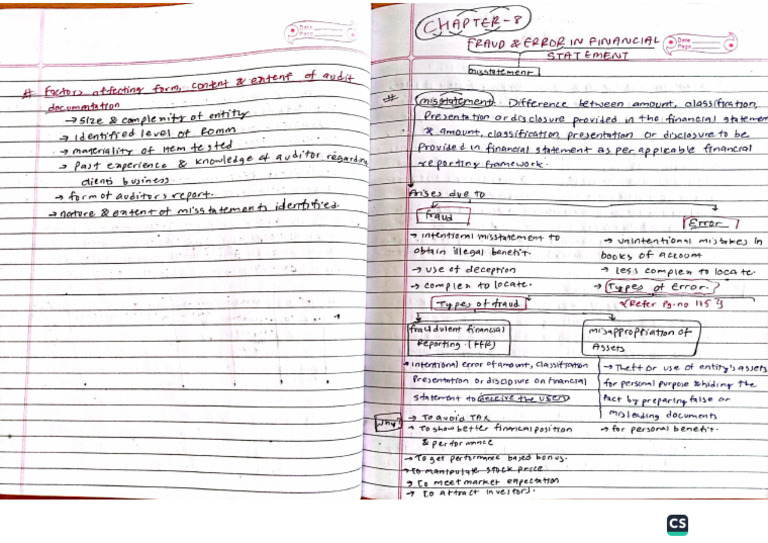 Date
Page
# Factors affecting form, content & extent of audit
documentation
→ size & complexity of entity
→ Identified level of ROMM
→ materiality of item tested
→ Past experience & knowledge of auditor regarding
clients business
→ form of auditors report.
→ nature & extent of misstatements identified.
CHAPTER-8
FRAUD & ERROR IN FINANCIAL
STATEMENT
Date
Page
misstatement
# misstatement: Difference between amount, classification,
Presentation or disclosure provided in the financial statement
& amount, classification presentation or disclosure to be
Provided in financial statement as per applicable financial
reporting framework.
Arises due to
fraud
Error
→ intentional misstatement to
obtain illegal benefit.
→ use of deception
→ complex to locate.
→ unintentional mistakes in
books of account
→ less complex to locate.
→ Types of error.
(Refer Pg. no 115)
Types of fraud
fraudulent financial
Reporting. (FFR)
misappropriation of
Assets
Intentional error of amount, classification
Presentation or disclosure on financial
statement to deceive the users
→ Theft or use of entity's assets
for personal purpose & hiding the
fact by preparing false or
misleading documents
→ for personal benefit.
Why?
→ To avoid TAX
→ To show better financial position
& performance
→ To get performance based bonus.
→ To manipulate stock price
→ To meet market expectation
→ To attract investors.
CS